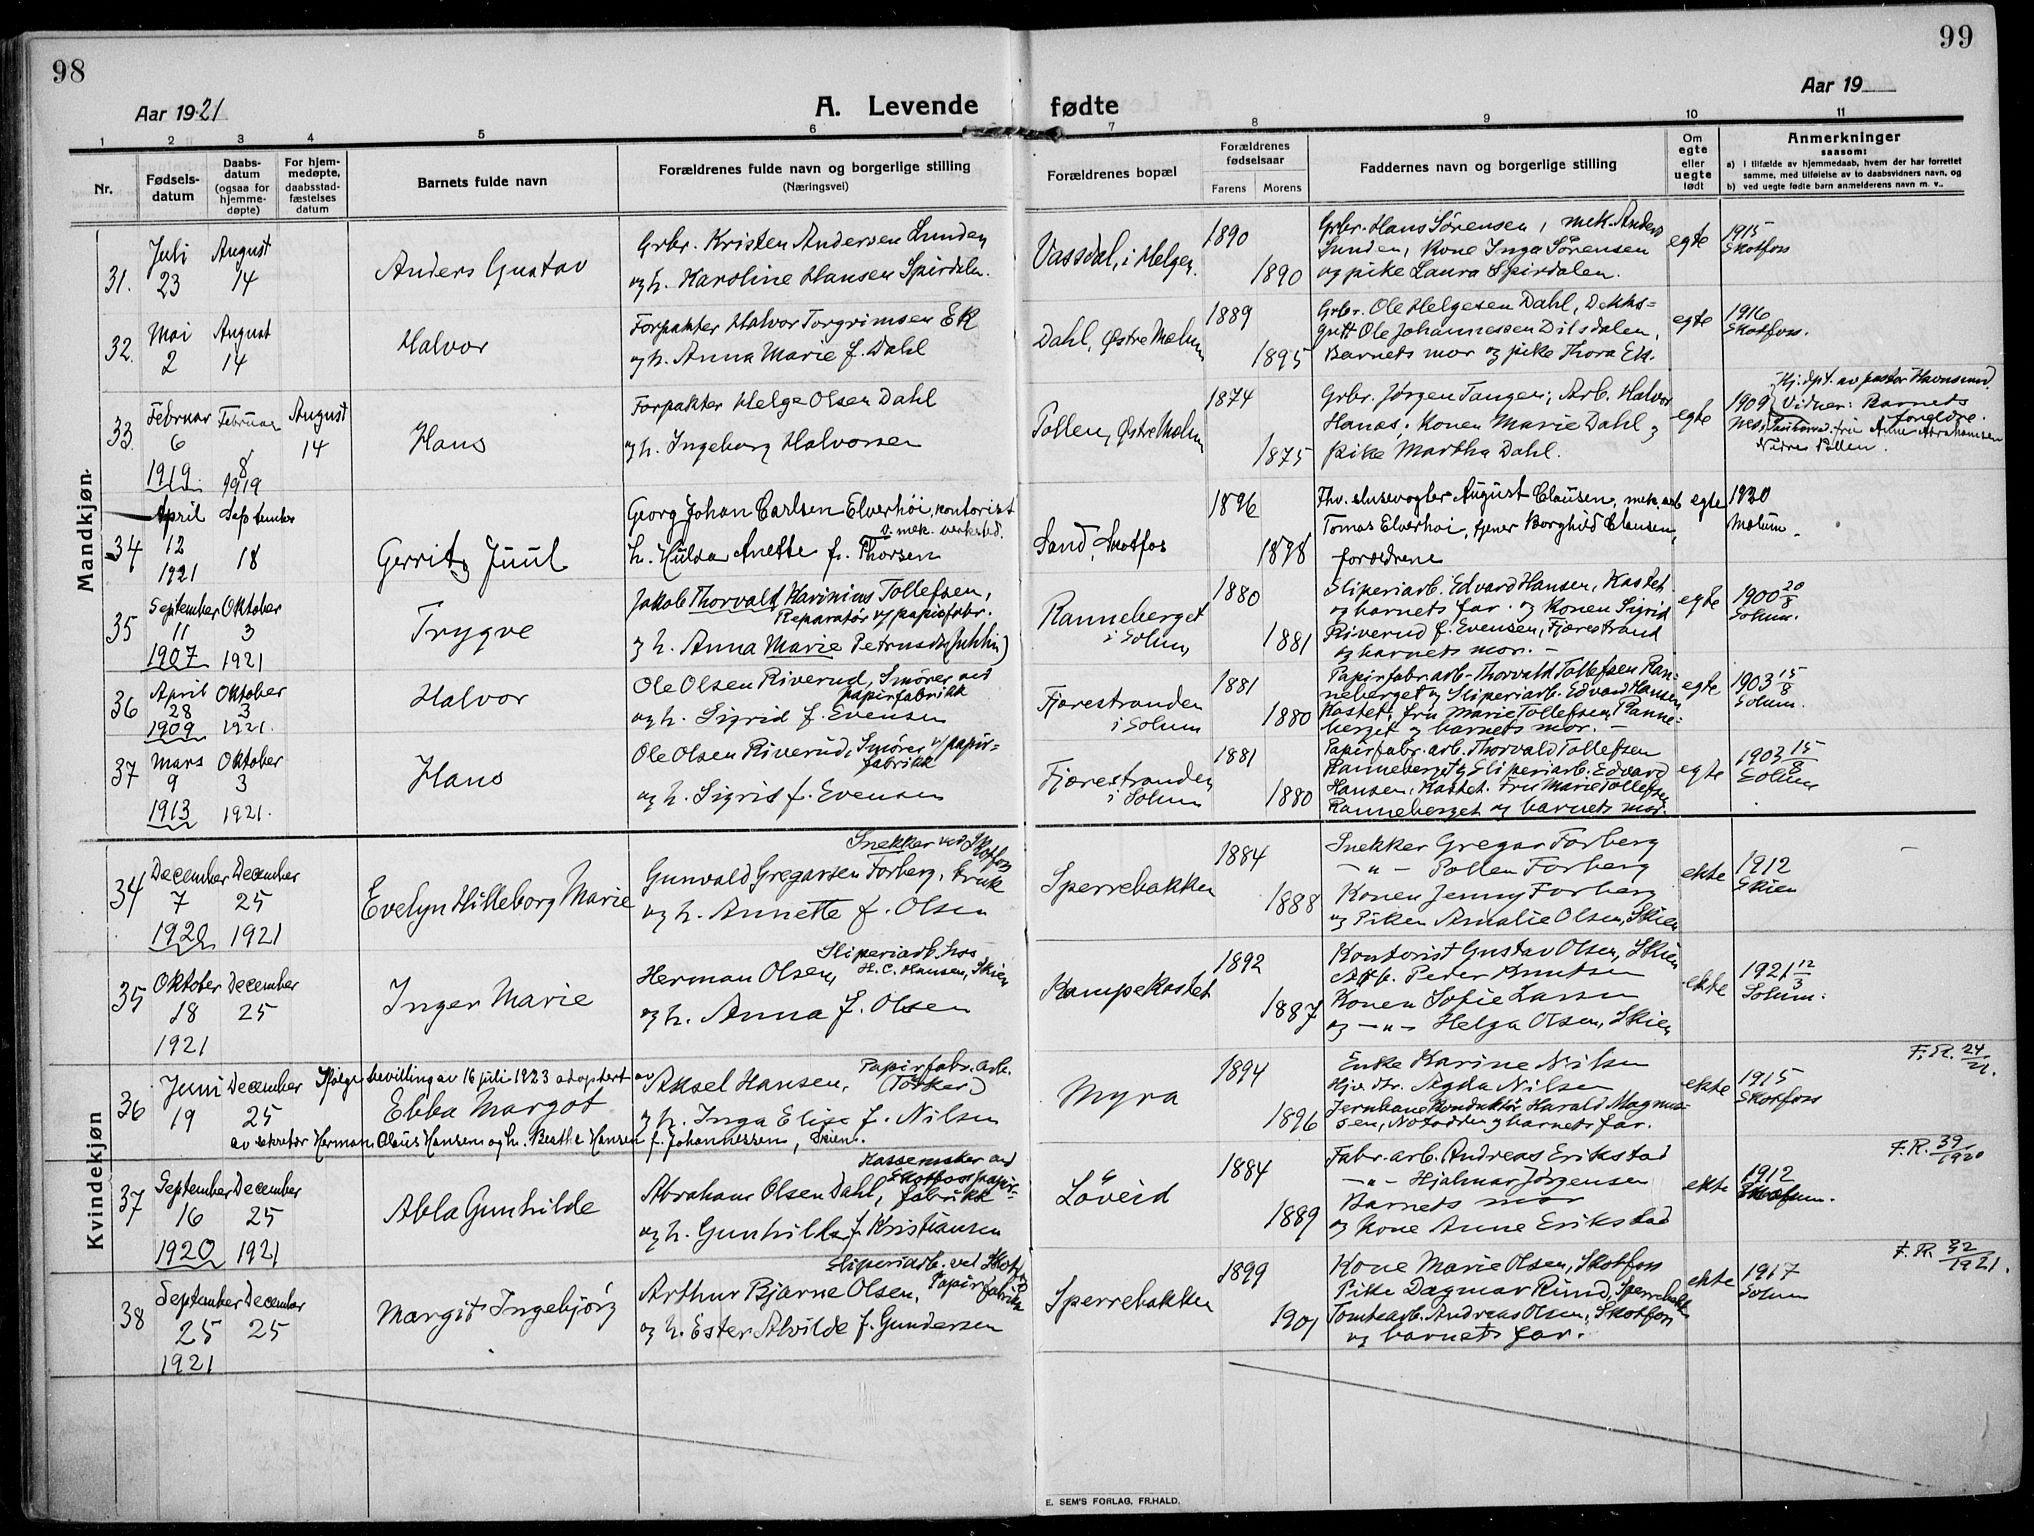 98
99
Aar 1921
A. Levende fødte
Aar 19
1 2 3 4 5 6 7 8 9 10 11
Nr.
Fødsels-
datum
Daabs-
datum
(ogsaa for
hjemme-
døpte)
For hjem-
medøpte,
daabsstad-
fæstelses
datum
Barnets fulde navn
Forældrenes fulde navn og borgerlige stilling
(Næringsvei)
Forældrenes bopæl
Forældrenes
fødselsaar
Farens Morens
Faddernes navn og borgerlige stilling
Om
egte
eller
uegte
født
Anmerkninger
saasom:
a) i tilfælde av hjemmedaab, hvem der har forrettet
samme, med tilføielse av to daabsvidners navn, og
b) ved uegte fødte barn anmelderens navn m. v..
Mandkjøn.
31. Juli 23 August 14
Anders Gustav
Grbr. Kristen Andersen Lunden
og h. Karoline Hansen Spirdalen.
Vassdal, i Helgen.
1890
1890
Grbr. Hans Sørensen, mek. Anders
Lunden, Kone Inga Sørensen
og pike Laura Spirdalen.
egte
1915
Skotfoss
32. Mai 2 August 14
Halvor
Forpakter Halvor Torgrimsen Ek
og h. Anna Marie f. Dahl
Dahl, Østre Melum
1889
1895
Grbr. Ole Helgesen Dahl, Dekks=
gutt Ole Johannessen Dilsdalen,
Barnets mor og pike Thora Ek.
egte
1916
Skotfoss.
33. Februar 6 1919. Februar 8 1919 August 14
Hans
Forpakter Helge Olsen Dahl
og h. Ingeborg Halvorsen
Tollen, Østre Melum
1874
1875
Grbr. Jørgen Tangen, Arb. Halvor
Hanas, Konen Marie Dahl og
pike Martha Dahl.
egte
1909
Nes
Hj.dpt. av pastor Havnsund
Vidner: Barnets
foreldre.
fru Anne Abrahamsen
Nedre Tollen.
34 April 12 1921 September 18
Gerritz Juul
Georg Johan Carlsen Elverhøi, kontorist
v. mek. verksted.
h. Hulda Anette f. Thorsen
Sand, Skotfos
1896
1898
Fhv. slusevogter August Clausen, mek. arb
Tomas Elverhøi, frøner Borghild Clausen,
forældrene
egte
1920
Melum.
35 September 11 1907 Oktober 3 1921
Trygve
Jakob Thorvald Harinius Tollefsen,
Reparatør v/ papirfabr.
og h. Anna Marie Petrusdtr
Ranneberget
i Solum,
1880
1881
Sliperiarb. Edvard Hansen, Kastet
og barnets far. og Konen Sigrid
Riverud f. Evensen, Fjærestrand
og barnets mor. -
egte
1900 20/8
Solum.
36 April 28 1909 Oktober 3 1921.
Halvor
Ole Olsen Riverud, Smører ved
papirfabrikk
og h. Sigrid f. Evensen
Fjærestranden
i Solum
1881
1880
Papirfabr.arb. Thorvald Tollefsen Ran-
neberget og Sliperiarb. Edvard Hansen
Kastet, fru Marie Tollefsen, Ranne-
berget og barnets mor. -
egte
1903 15/8
Solum.
37 Mars 9 1913 Oktober 3 1921.
Hans
Ole Olsen Riverud, Smører v/ papir=
fabrikk
og h. Sigrid f. Evensen
Fjærestranden
i Solum
1881
1880
Papirfabr. arb. Thorvald Tollefsen
Ranneberget og Sliperiarb. Edvard
Hansen, Kastet. Fru Marie Tollefsen
Ranneberget og barnets mor.
egte
1903 15/8
Solum
Kvindekjøn
34 December 7 1920 December 25 1921
Evelyn Hilleborg Marie
Snekker ved Skotfos
Gunvald Gregarsen Forberg, bruk
og h. Annette f. Olsen
Sperrebakken
1884
1888
Snekker Gregar Forberg
-„- Pollen Forberg
Konen Jenny Forberg
og Piken Amalie Olsen, Skien
ekte
1912
Skien
35 Oktober 18 1921 December 25
Inger Marie
Sliperiarb. hos
Herman Olsen, H. C. Hansen, Skien
og h. Anna f. Olsen
Kampekastet
1892
1887
Kontorist Gustav Olsen, Skien
Arb. Peder Knutsen
Konen Sofie Larsen
og -„- Helga Olsen, Skien
ekte
1921 12/3
Solum.
36 Juni 19 December 25
Ifølge bevilling av 16 juli 1923 adoptert av
Ebba Margot
av sekretær Herman Claus Hansen og h. Beathe Hansen f. Johannessen, Skien.
Papirfabr. arb.
Aksel Hansen, (Tørker)
og h. Inga Elise f. Nilsen
Myra
1894
1896
Enke Karine Nilsen
Hjv. dtr. Agda Nilsen
Jernbanekonduktør Harald Magnus-
sen, Notodden og barnets far.
ekte
1915
Skotfoss
F. R. 24/21.
37 September 16 1920 December 25 1921
Abla Gunhilde
Kassemaker ved
Skotfoss papir-
Abraham Olsen Dahl, fabrikk
og h. Gunhilda f. Kristiansen
Løveid
1884
1889
Fabr. arb. Andreas Erikstad
-„- Hjalmar Jørgensen
Barnets mor
og Kone Anne Erikstad
ekte
1912
F. R. 39/1920
38 September 25 1921 December 25
Margit Ingebjørg
Sliperiarb. ved Skotfos
Arthur Bjarne Olsen, Papirfabrikk
og h. Ester Alvilde f. Gundersen
Sperrebakken
1899
1901
Kone Marie Olsen, Skotfoss
Pike Dagmar Rund, Sperrebakken
Tomtearb. Andreas Olsen, Skotfoss
og barnets far.
ekte
1917
Solum
F. R. 32/1921.
E. SEM'S FORLAG, FR.HALD.